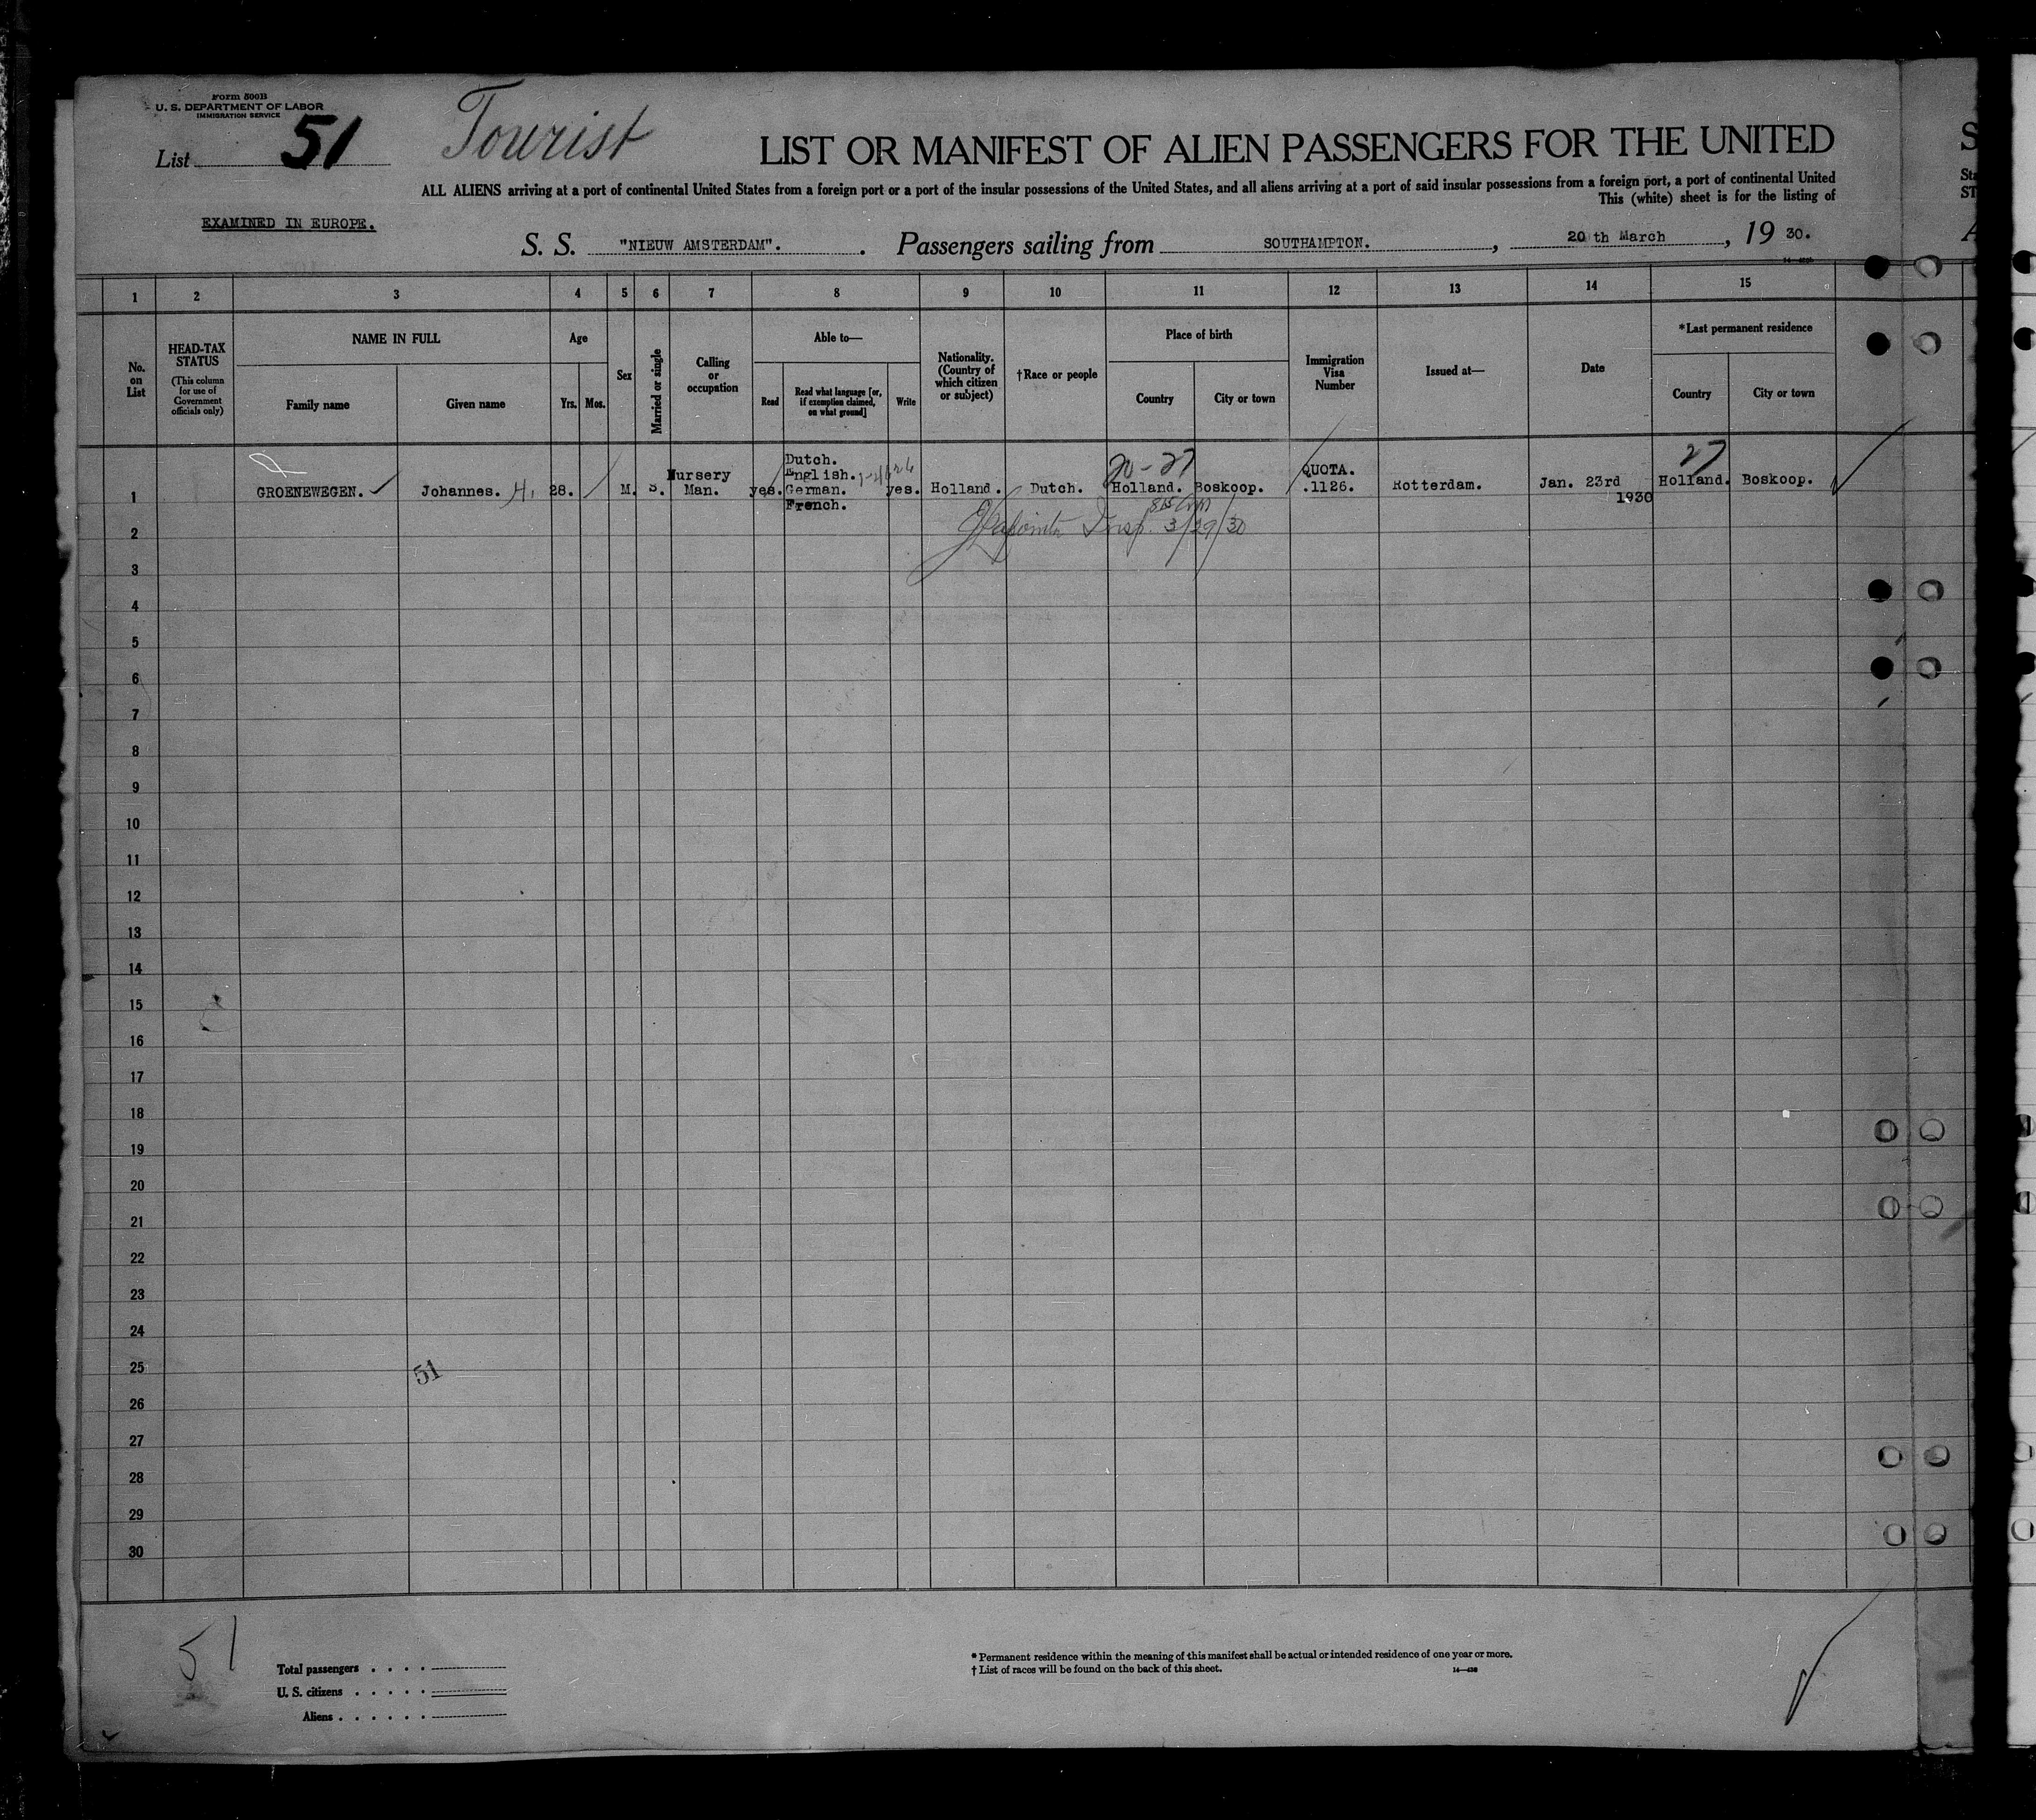 Form 500B
U. S. DEPARTMENT OF LABOR
IMMIGRATION SERVICE
List 51
Tourist
LIST OR MANIFEST OF ALIEN PASSENGERS FOR THE UNITED
ALL ALIENS arriving at a port of continental United States from a foreign port or a port of the insular possessions of the United States, and all aliens arriving at a port of said insular possessions from a foreign port, a port of continental United
This (white) sheet is for the listing of
EXAMINED IN EUROPE.
S. S. "NIEUW AMSTERDAM". Passengers sailing from SOUTHAMPTON. , 20 th March , 19 30.
1 2 3 4 5 6 7 8 9 10 11 12 13 14 15
No. on List
HEAD-TAX STATUS
(This column for use of Government officials only)
NAME IN FULL
Family name
Given name
Age
Yrs.
Mos.
Sex
Married or single
Calling or occupation
Able to—
Read
Read what language [or, if exemption claimed, on what ground]
Write
Nationality. (Country of which citizen or subject)
†Race or people
Place of birth
Country
City or town
Immigration Visa Number
Issued at—
Date
*Last permanent residence
Country
City or town
1 GROENEWEGEN. Johannes. H. 28. M. S. Nursery Man. yes. Dutch. English. German. French. yes. Holland. Dutch. Holland. Boskoop. QUOTA. .1126. Rotterdam. Jan. 23rd 1930 Holland. Boskoop.
27
Insp. 3/29/30
2
3
4
5
6
7
8
9
10
11
12
13
14
15
16
17
18
19
20
21
22
23
24
25
51
26
27
28
29
30
51
Total passengers . . . .
U. S. citizens . . . . .
Aliens . . . . . .
* Permanent residence within the meaning of this manifest shall be actual or intended residence of one year or more.
† List of races will be found on the back of this sheet.